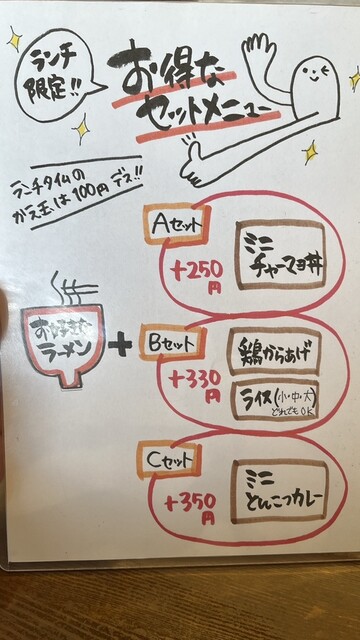 ランチ
限定!!
お得な
セットメニュー
ランチタイムの
かえ玉は100円デス!!
Aセット
+250円
ミニ
チャーマヨ丼
お好きな
ラーメン
+
Bセット
+330円
鶏からあげ
ライス(小・中・大)
どれでもOK
Cセット
+350円
ミニ
とんこつカレー